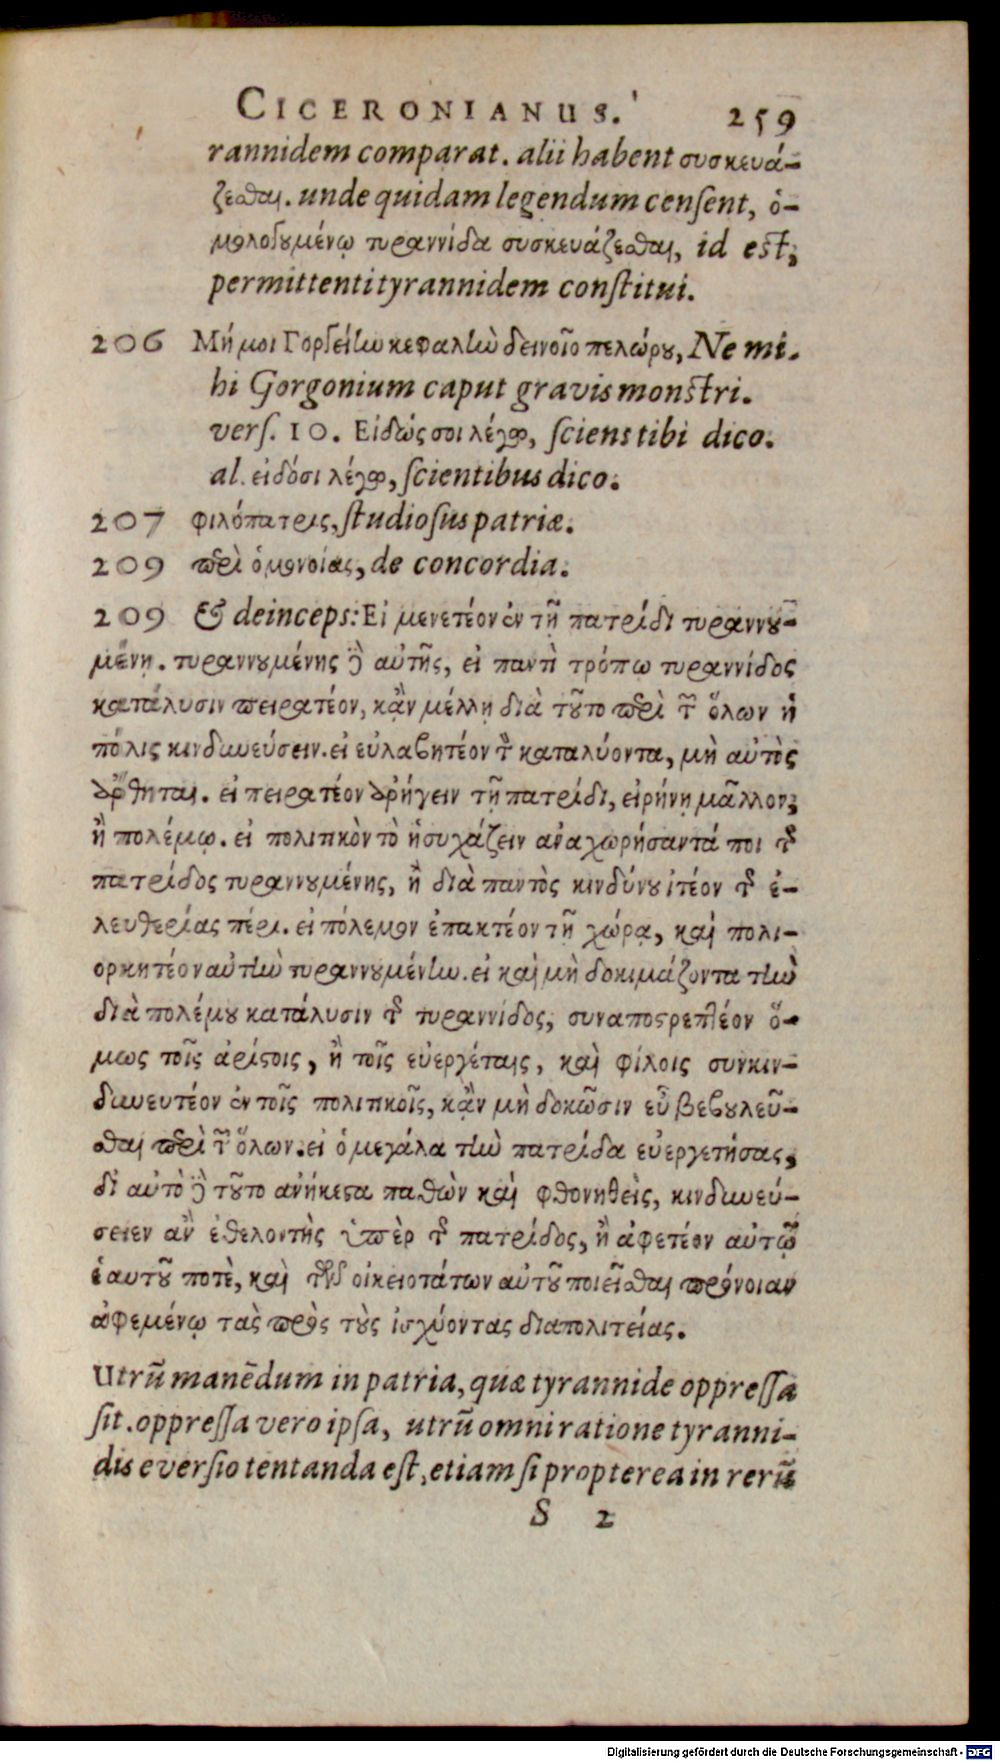 CICERONIANUS. 259
rannidem comparat. alii habent συσκευά-
ζεσθαι. unde quidam legendum censent, ὁ-
μολογουμένῳ τυραννίδα συσκευάζεσθαι, id est,
permittenti tyrannidem constitui.
206 Μή μοι Γοργείην κεφαλὴν δεινοῖο πελώρου, Ne mi-
hi Gorgonium caput gravis monstri.
vers. 10. Εἰδώς σοι λέγω, sciens tibi dico.
al. εἰδόσι λέγω, scientibus dico.
207 φιλόπατρις, studiosus patriæ.
209 περὶ ὁμονοίας, de concordia.
209 & deinceps: Εἰ μενετέον ἐν τῇ πατρίδι τυραννου-
μένῃ. τυραννουμένης δὲ αὐτῆς, εἰ παντὶ τρόπω τυραννίδος
κατάλυσιν πειρατέον, κἂν μέλλῃ διὰ τοῦτο περὶ τῶν ὅλων ἡ
πόλις κινδυνεύσειν. εἰ εὐλαβητέον τὸν καταλύοντα, μὴ αὐτὸς
αἴρηται. εἰ πειρατέον ἀρήγειν τῇ πατρίδι, εἰρήνῃ μᾶλλον,
ἢ πολέμῳ. εἰ πολιτικὸν τὸ ἡσυχάζειν ἀναχωρήσαντά ποι τῆς
πατρίδος τυραννουμένης, ἢ διὰ παντὸς κινδύνου ἰτέον τῆς ἐ-
λευθερίας πέρι. εἰ πόλεμον ἐπακτέον τῇ χώρᾳ, καὶ πολι-
ορκητέον αὐτὴν τυραννουμένην. εἰ καὶ μὴ δοκιμάζοντα τὴν
διὰ πολέμου κατάλυσιν τῆς τυραννίδος, συναποτρεπτέον ὅ-
μως τοῖς ἀρίστοις, ἢ τοῖς εὐεργέταις, καὶ φίλοις συνκιν-
δυνευτέον ἐν τοῖς πολιτικοῖς, κἂν μὴ δοκῶσιν εὖ βεβουλεῦ-
σθαι περὶ τῶν ὅλων. εἰ ὁ μεγάλα τὴν πατρίδα εὐεργετήσας,
δι αὐτὸ δὲ τοῦτο ἀνήκεστα παθὼν καὶ φθονηθεὶς, κινδυνεύ-
σειεν ἂν ἐθελοντὴς ὑπὲρ τῆς πατρίδος, ἢ ἀφετέον αὐτῷ
ἑαυτοῦ ποτὲ, καὶ τῶν οἰκειοτάτων αὐτοῦ ποιεῖσθαι πρόνοιαν
ἀφεμένῳ τὰς πρὸς τοὺς ἰσχύοντας διαπολιτείας.
Utrũ manẽdum in patria, quæ tyrannide oppressa
sit. oppressa vero ipsa, utrũ omni ratione tyranni-
dis eversio tentanda est, etiam si propterea in rerũ
S 2
Digitalisierung gefördert durch die Deutsche Forschungsgemeinschaft - DFG